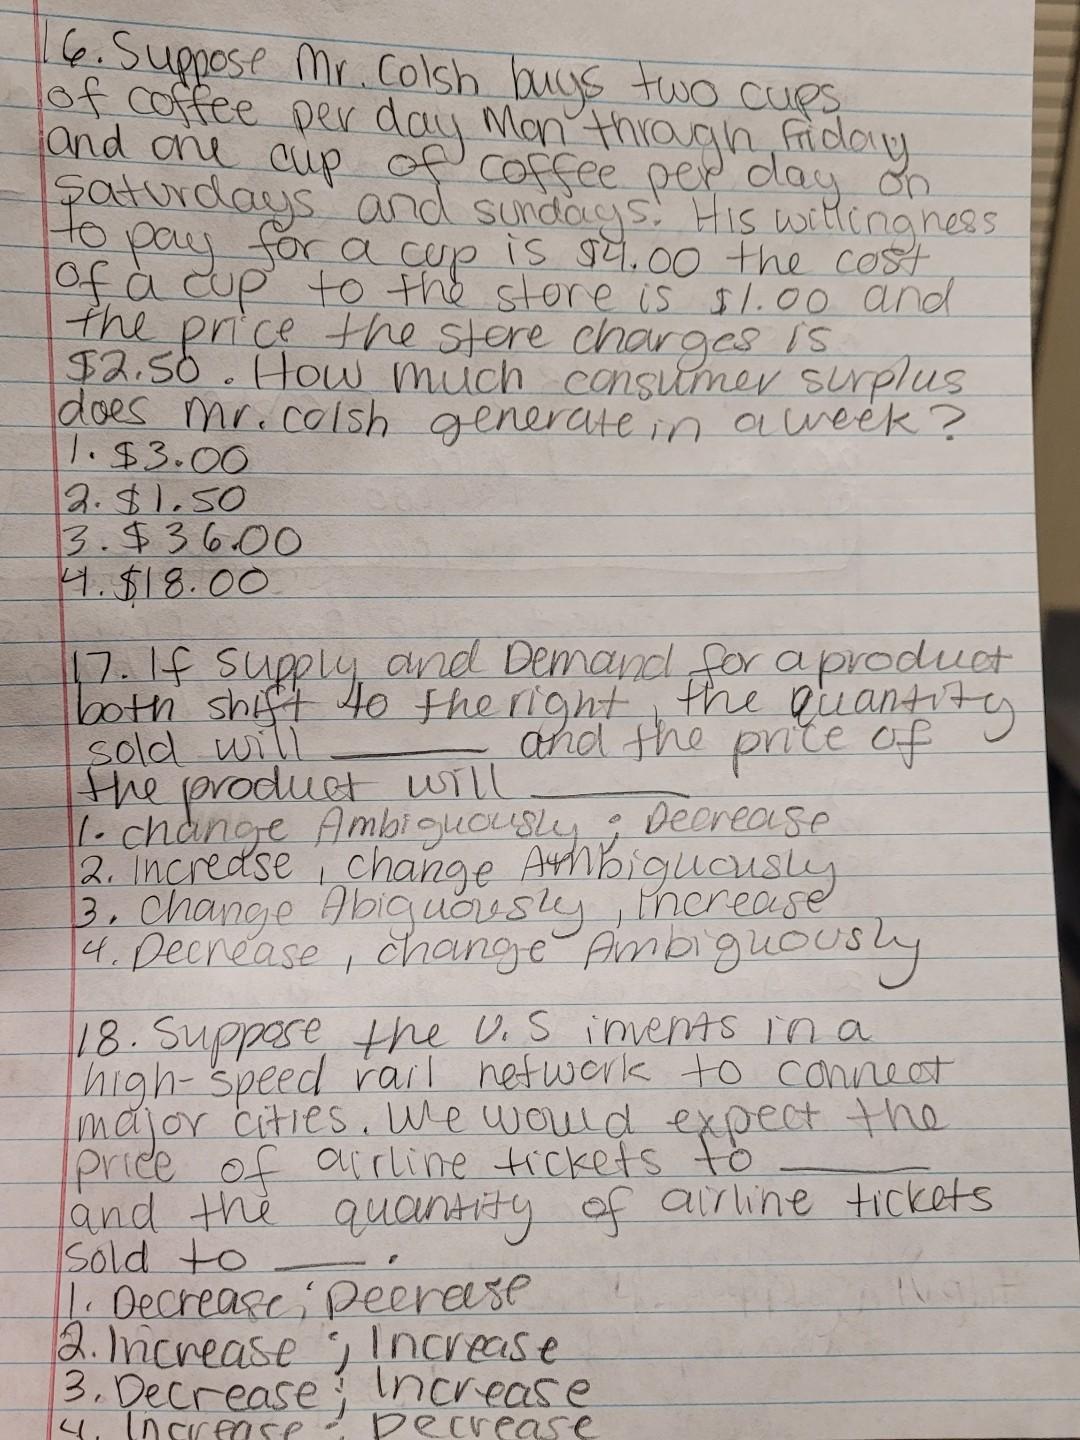 16. Suppose Mr. Colsh buys two cups
of coffee per day Mon through Friday
and one cup of coffee per day on
Saturdays and sundays. His willingness
to pay for a cup is $4.00 the cost
of a cup to the store is $1.00 and
the price the store charges is
$2.50. How much consumer surplus
does Mr. Colsh generate in a week?
1. $3.00
2. $1.50
3. $36.00
4. $18.00
17. If supply and Demand for a product
both shift to the right, the quantity
sold will ______ and the price of
the product will ______
1. change Ambiguously; Decrease
2. Increase, change Ambiguously
3. Change Abiguously, increase
4. Decrease, change Ambiguously
18. Suppose the U.S invents in a
high-speed rail network to connect
major cities. We would expect the
price of airline tickets to ______
and the quantity of airline tickets
sold to ____.
1. Decrease; Decrease
2. Increase; Increase
3. Decrease; Increase
4. Increase; Decrease